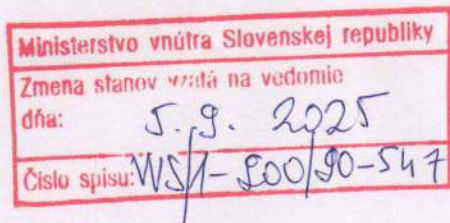 Ministerstvo vnútra Slovenskej republiky
Zmena stanov vzatá na vedomie
dňa: 5.9. 2025
Číslo spisu: VVS/1-900/90-547